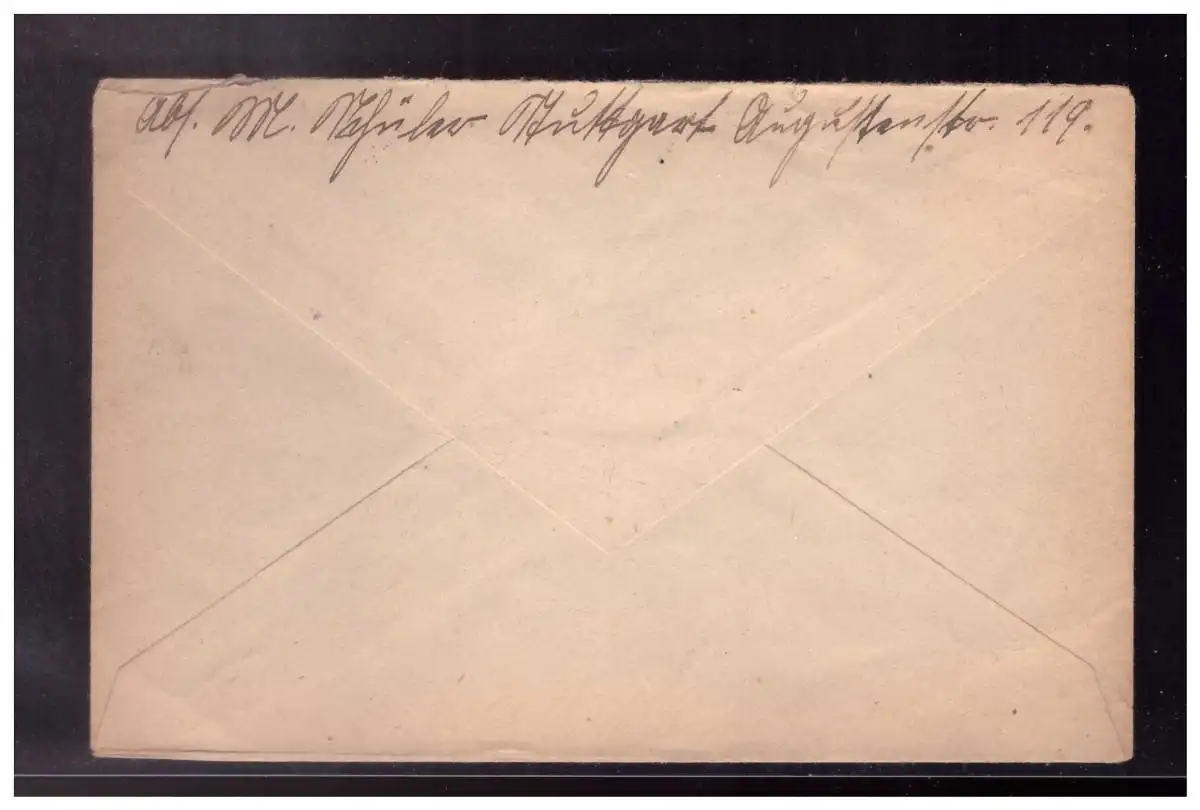 Abs. M. Schüler Stuttgart Augustenstr. 119.